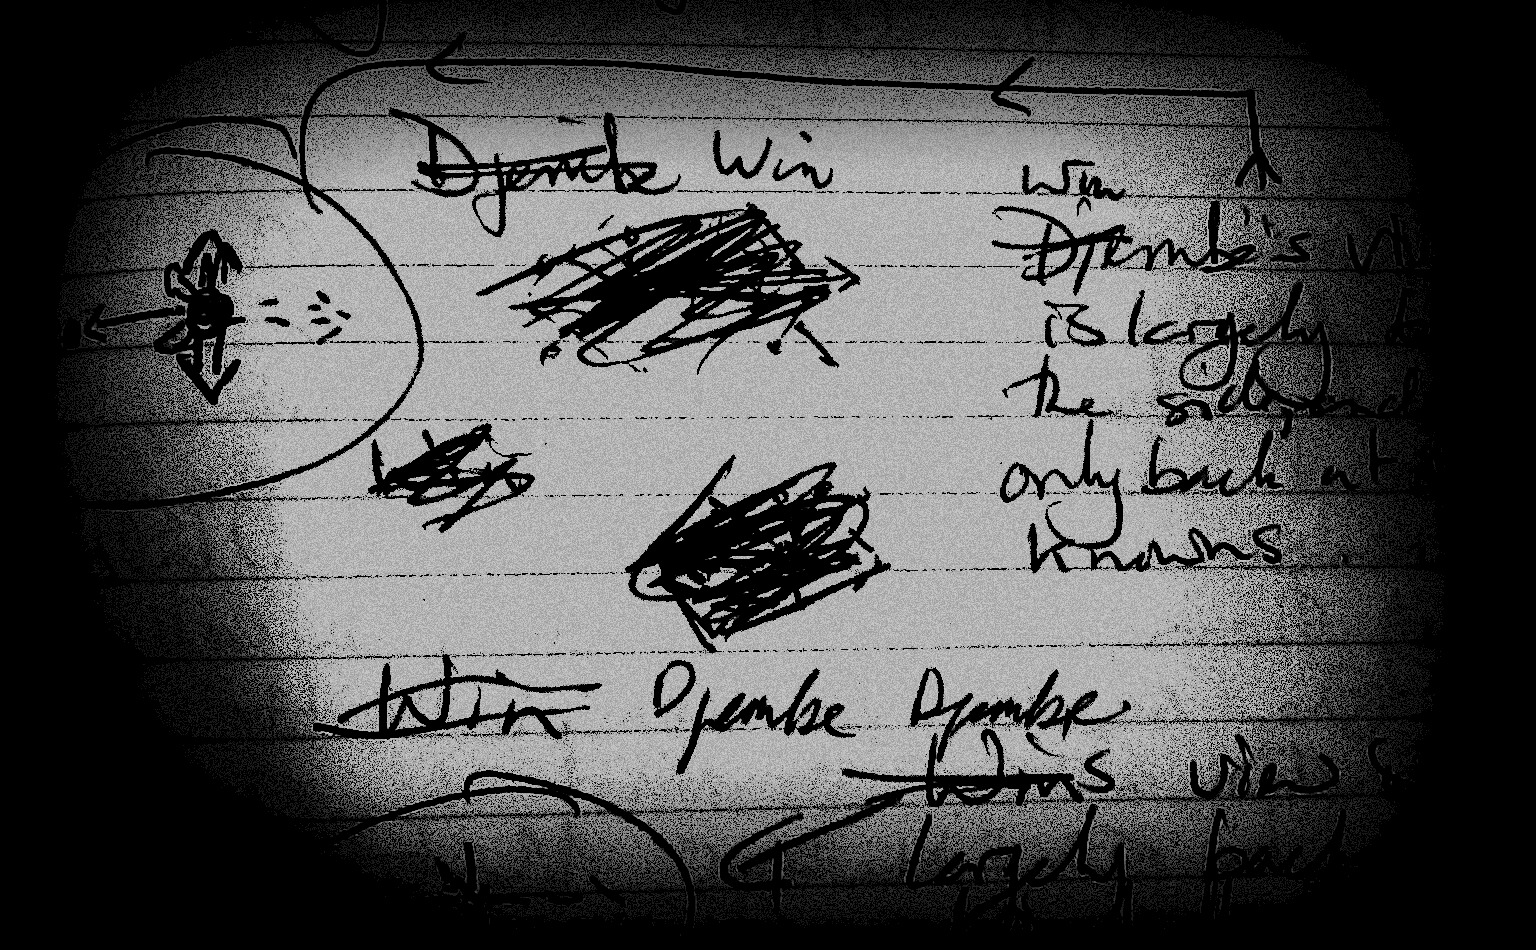 Djembe Win
Win
Djembe's
is largely
the side, and
only back at
knowns
Win Djembe Djembe
Wins views
largely back